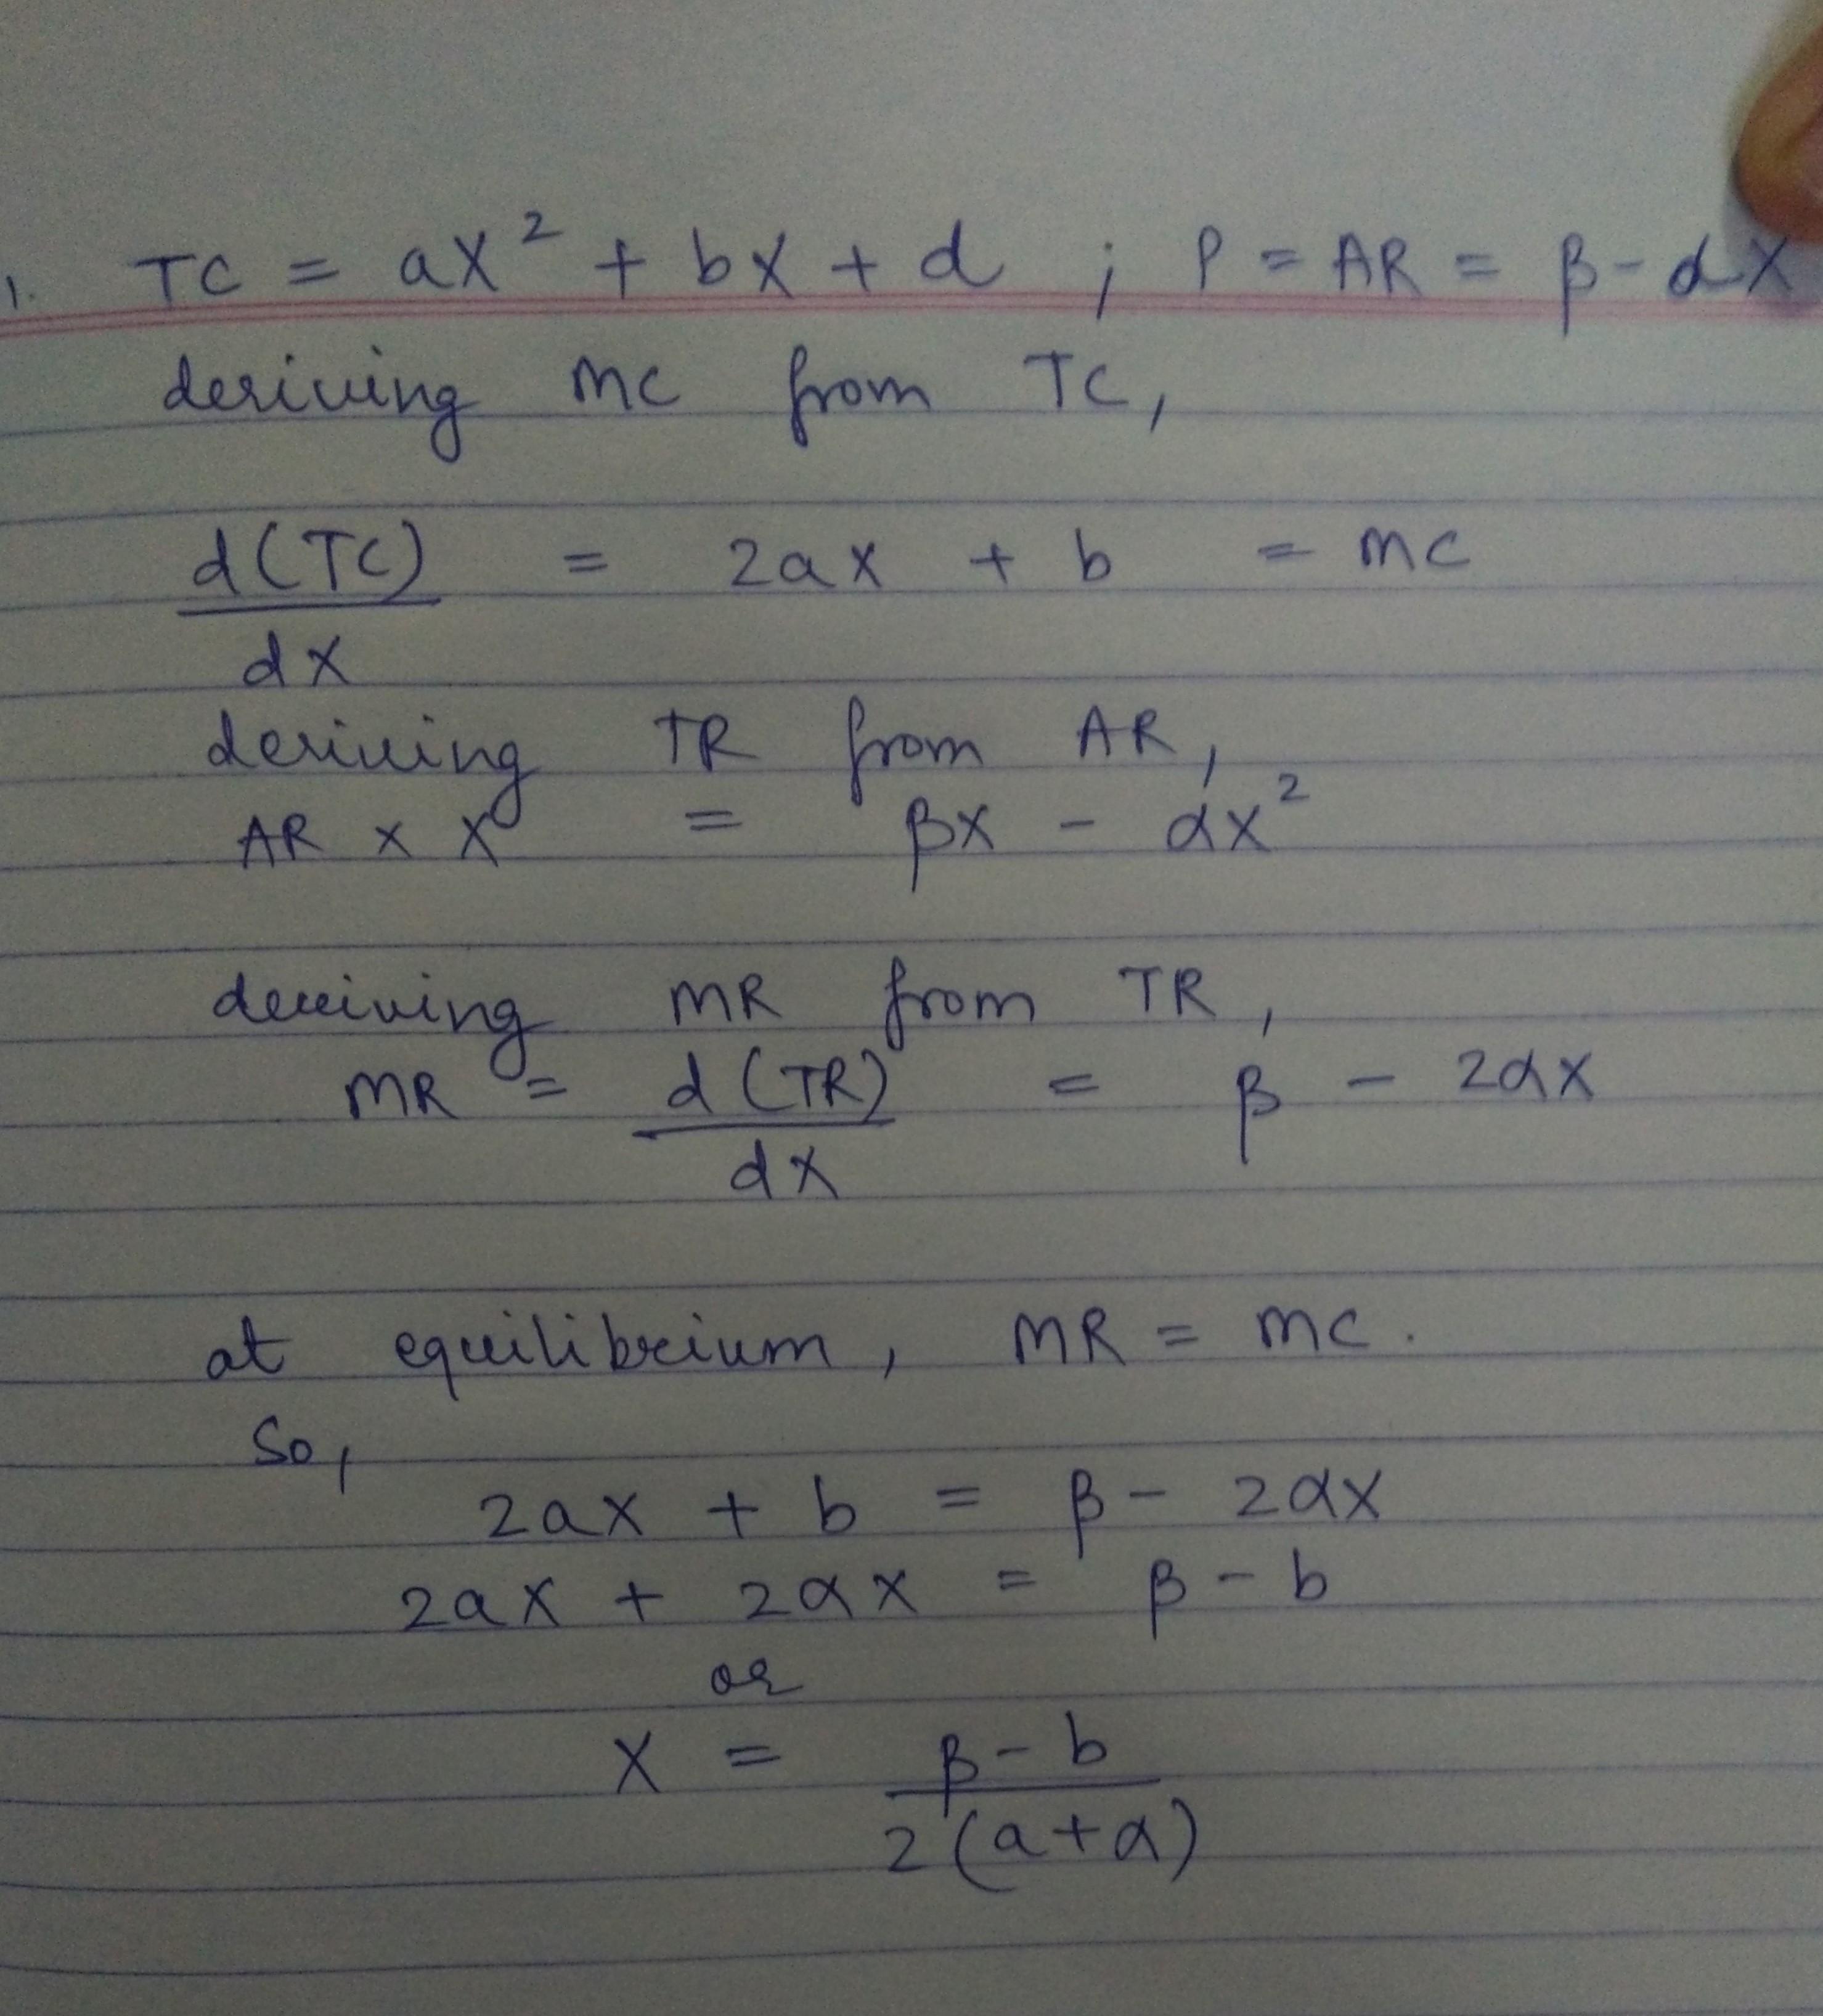 1. TC = aX² + bX + d ; P = AR = β - αX
deriving MC from TC,
d(TC) = 2aX + b = MC
dX
deriving TR from AR,
AR × X = βX - αX²
deriving MR from TR,
MR = d(TR) = β - 2αX
dX
at equilibrium, MR = MC.
So,
2aX + b = β - 2αX
2aX + 2αX = β - b
or
X = β - b
2(a+α)